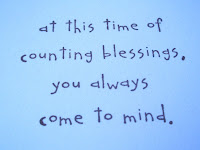 at this time of
counting blessings,
you always
come to mind.